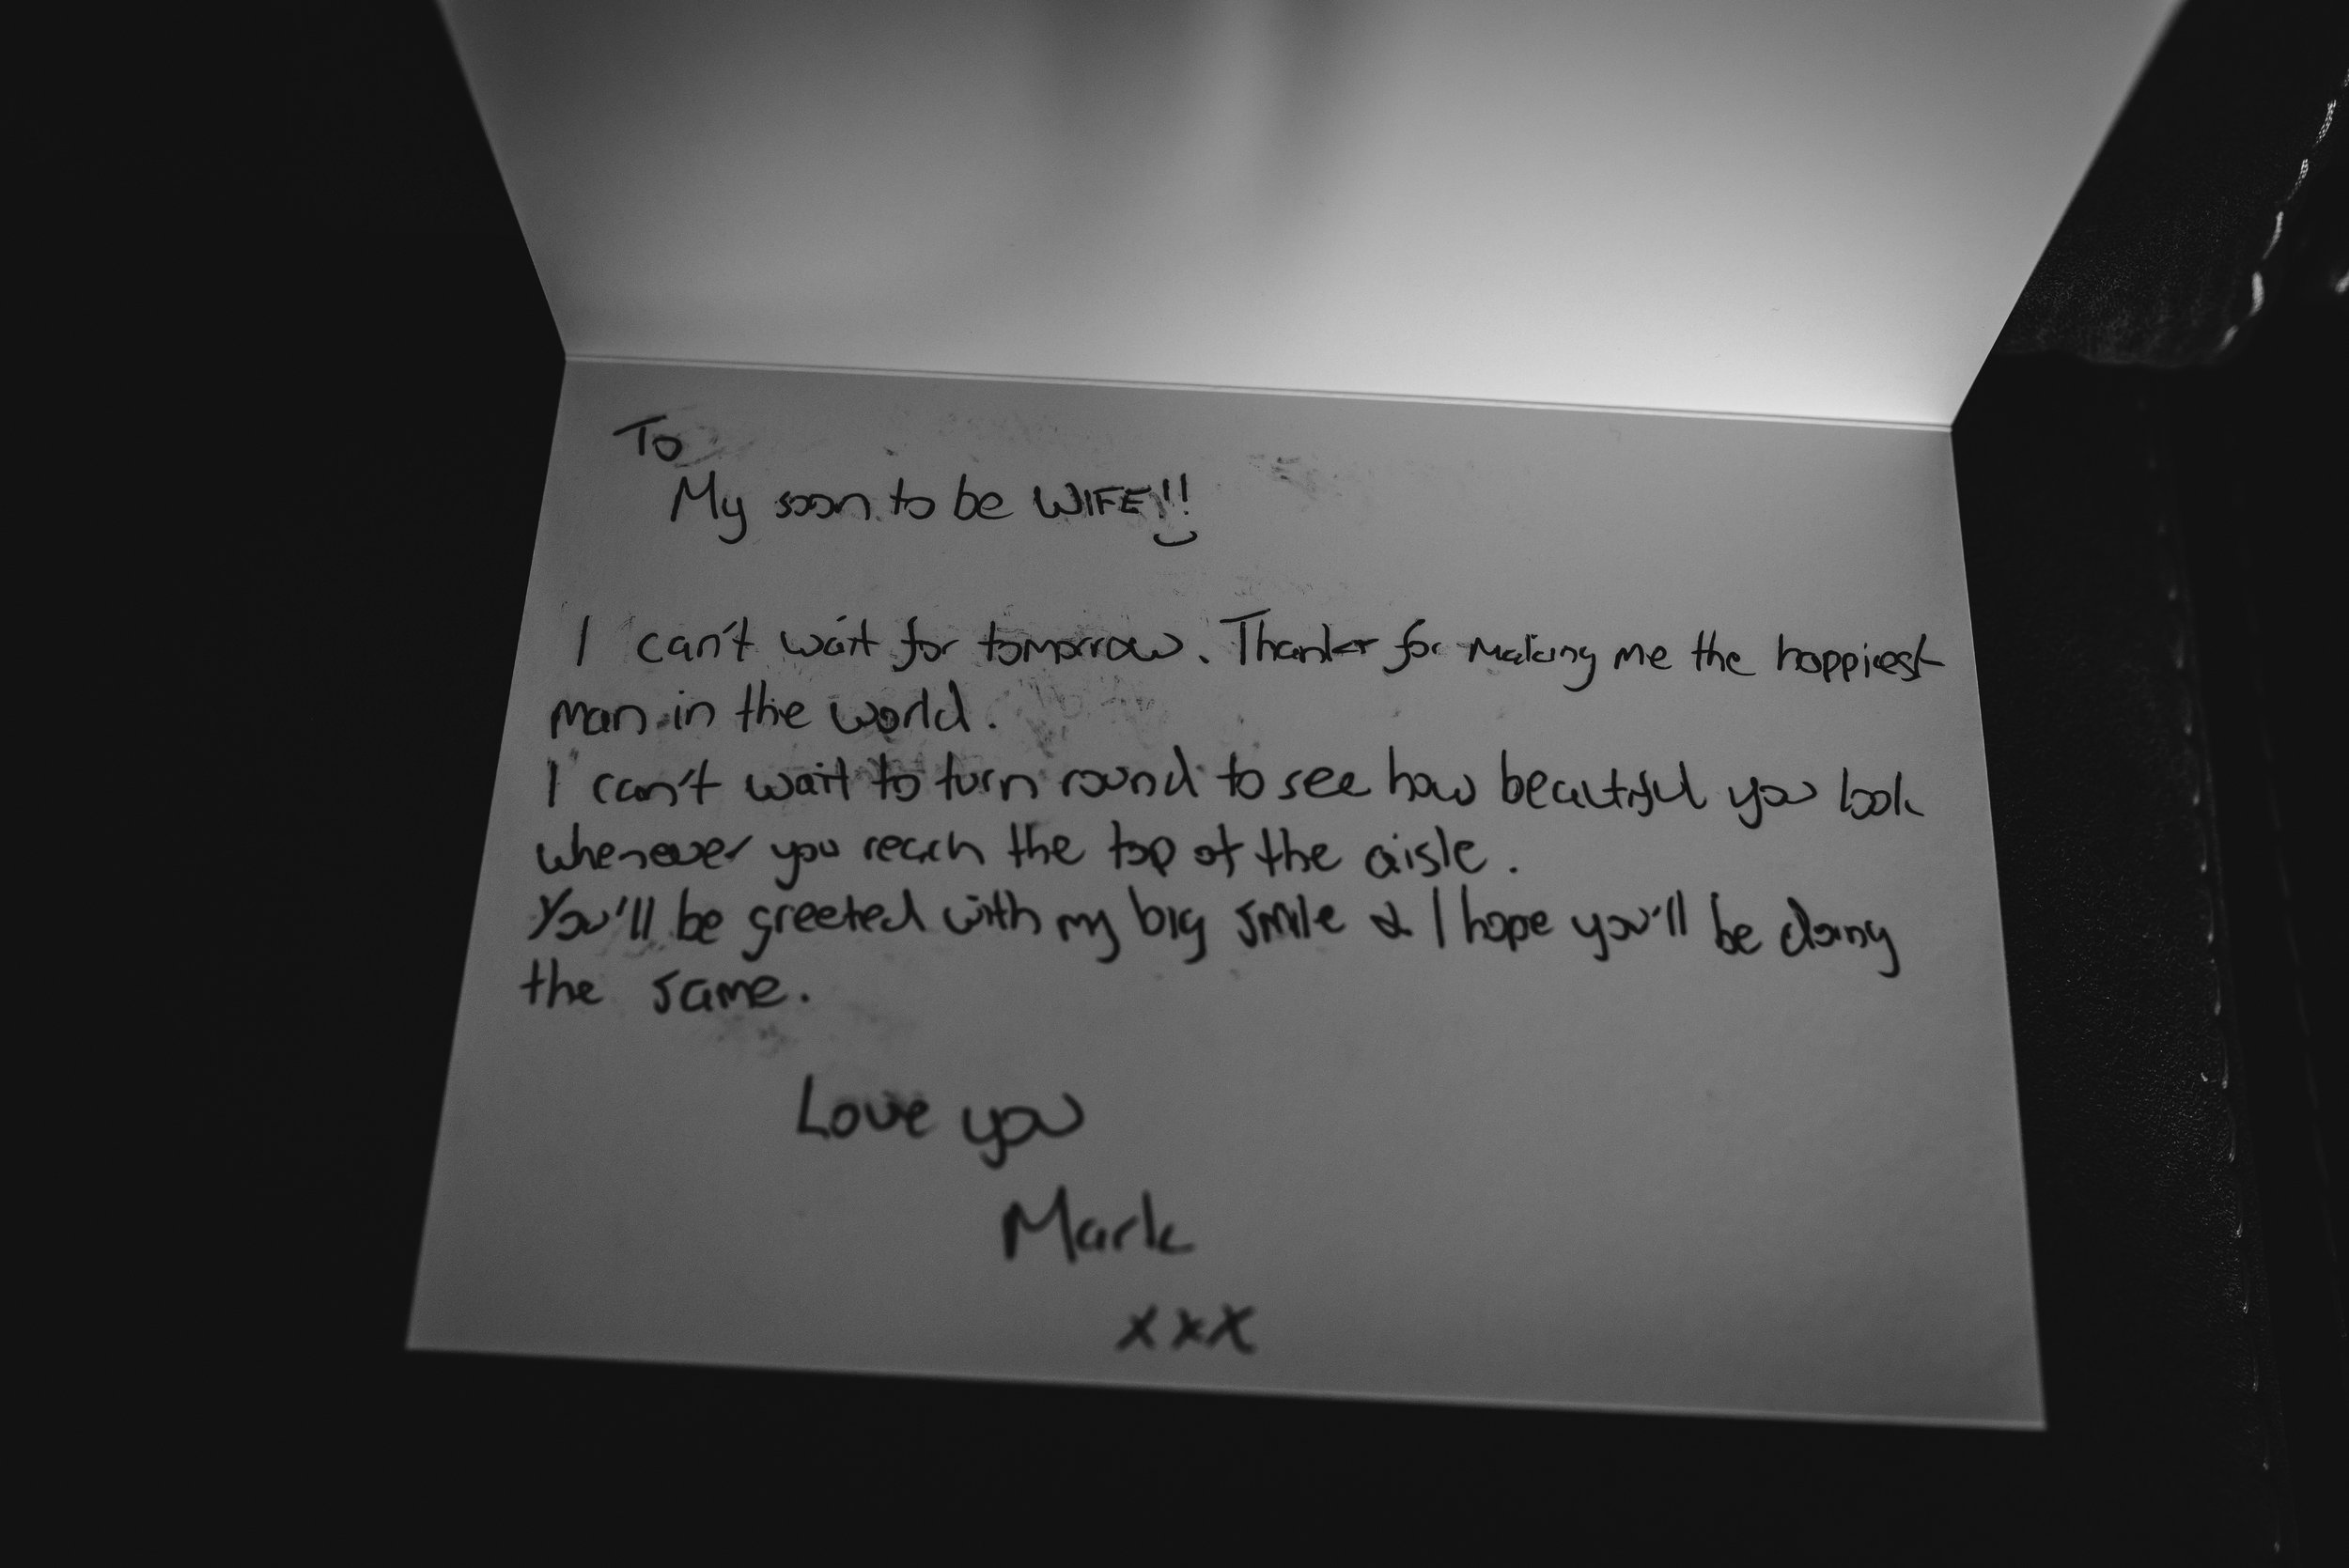 To
My soon to be WIFE!!
I can't wait for tomorrow. Thanks for making me the happiest
man in the world.
I can't wait to turn round to see how beautiful you look
whenever you reach the top of the aisle.
You'll be greeted with my big smile & I hope you'll be doing
the same.
Love you
Mark
xxx